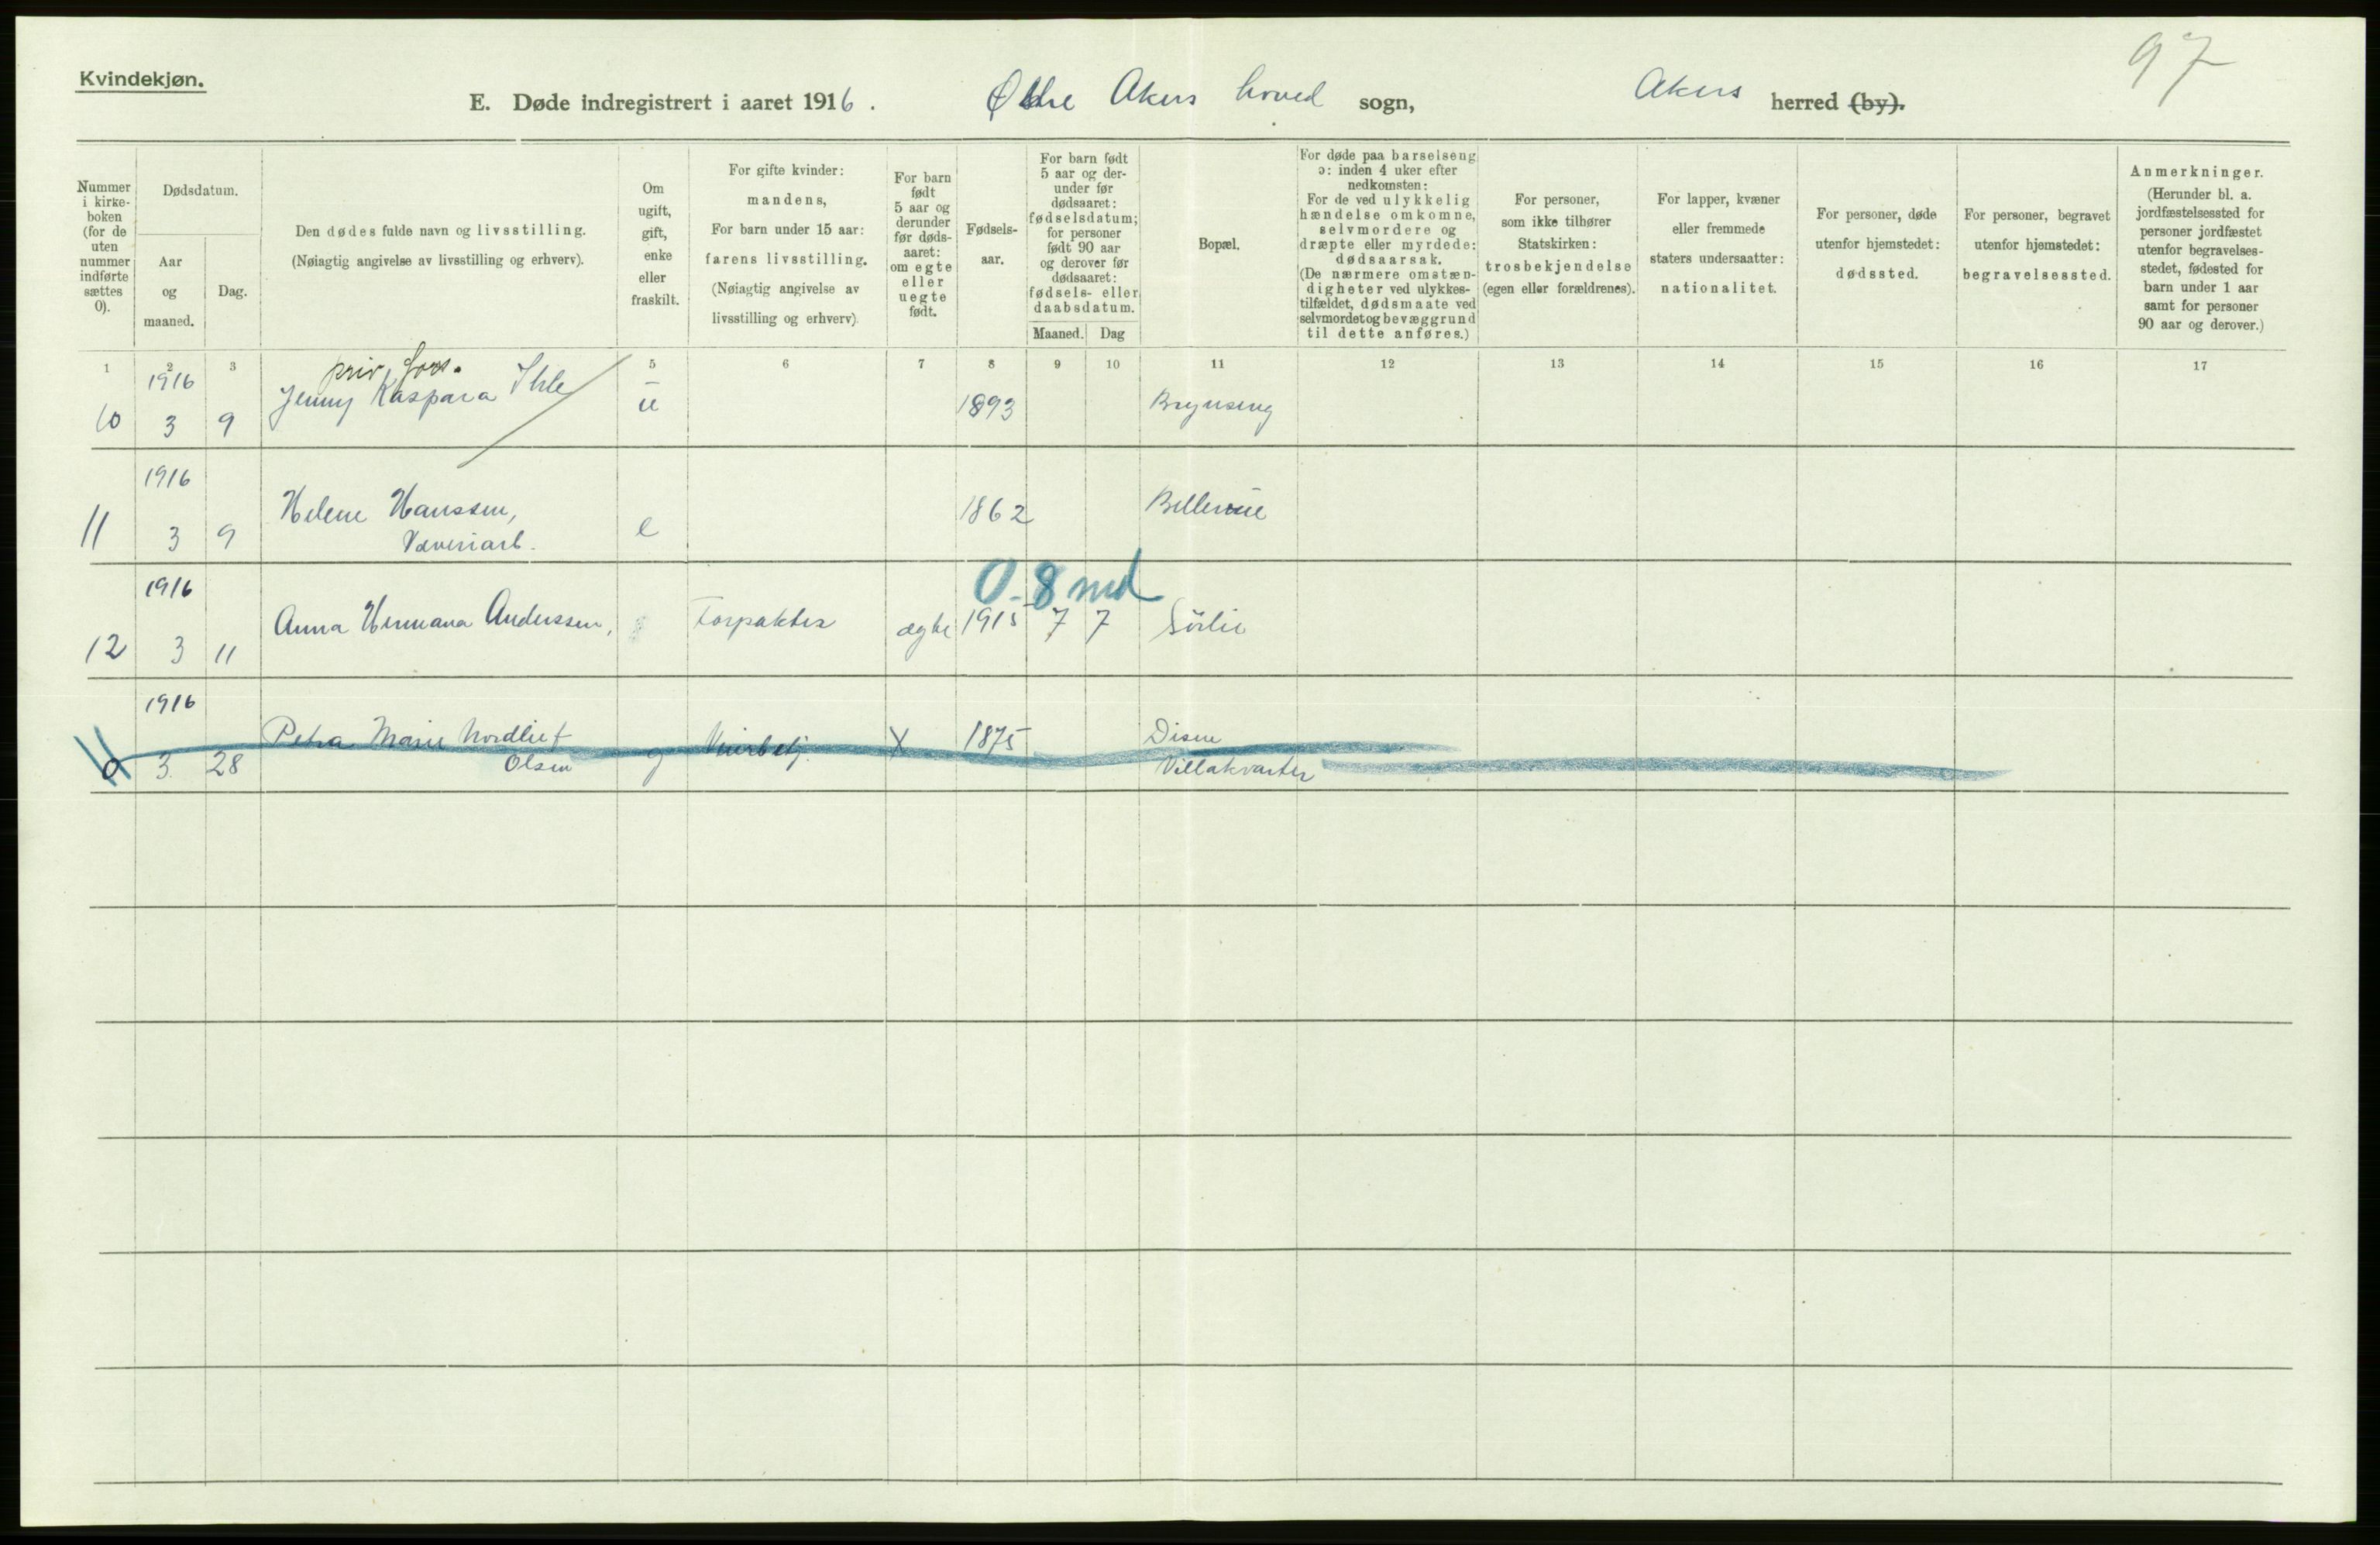 97
Kvindekjøn.
E. Døde indregistrert i aaret 1916. Østre Akers hoved sogn, Akers herred (by).
Nummer i kirke-boken (for de uten nummer indførte sættes 0).
Dødsdatum.
Aar og maaned.
Dag.
Den dødes fulde navn og livsstilling.
(Nøiagtig angivelse av livsstilling og erhverv).
Om ugift, gift, enke eller fraskilt.
For gifte kvinder: mandens,
For barn under 15 aar: farens livsstilling.
(Nøiagtig angivelse av livsstilling og erhverv)
For barn født 5 aar og derunder før døds-aaret: om egte eller uegte født.
Fødsels-aar.
For barn født 5 aar og der-under før dødsaaret: fødselsdatum; for personer født 90 aar og derover før dødsaaret: fødsels- eller daabsdatum.
Maaned. Dag
Bopæl.
For døde paa barselseng ɔ: inden 4 uker efter nedkomsten:
For de ved ulykkelig hændelse omkomne, selvmordere og dræpte eller myrdede: dødsaarsak.
(De nærmere omstæn-digheter ved ulykkes-tilfældet, dødsmaate ved selvmordet og bevæggrund til dette anføres.)
For personer, som ikke tilhører Statskirken: trosbekjendelse (egen eller forældrenes).
For lapper, kvæner eller fremmede staters undersaatter: nationalitet.
For personer, døde utenfor hjemstedet: dødssted.
For personer, begravet utenfor hjemstedet: begravelsessted.
Anmerkninger.
(Herunder bl. a. jordfæstelsessted for personer jordfæstet utenfor begravelses-stedet, fødested for barn under 1 aar samt for personer 90 aar og derover.)
1 2 3 5 6 7 8 9 10 11 12 13 14 15 16 17
priv. fors.
1916
10 3 9 Jenny Kaspara Ihle u 1893 Brynseng
1916
11 3 9 Helene Hanssen, e 1862 Bellevue
Væveriarb.
0-8 md
1916
12 3 11 Anna Hermana Anderssen, Forpakter ægte 1915 7 7 Sörlie
1916
0 3 28 Petra Marie Nordliet g X 1875 Disen
Olsen Villakvarter